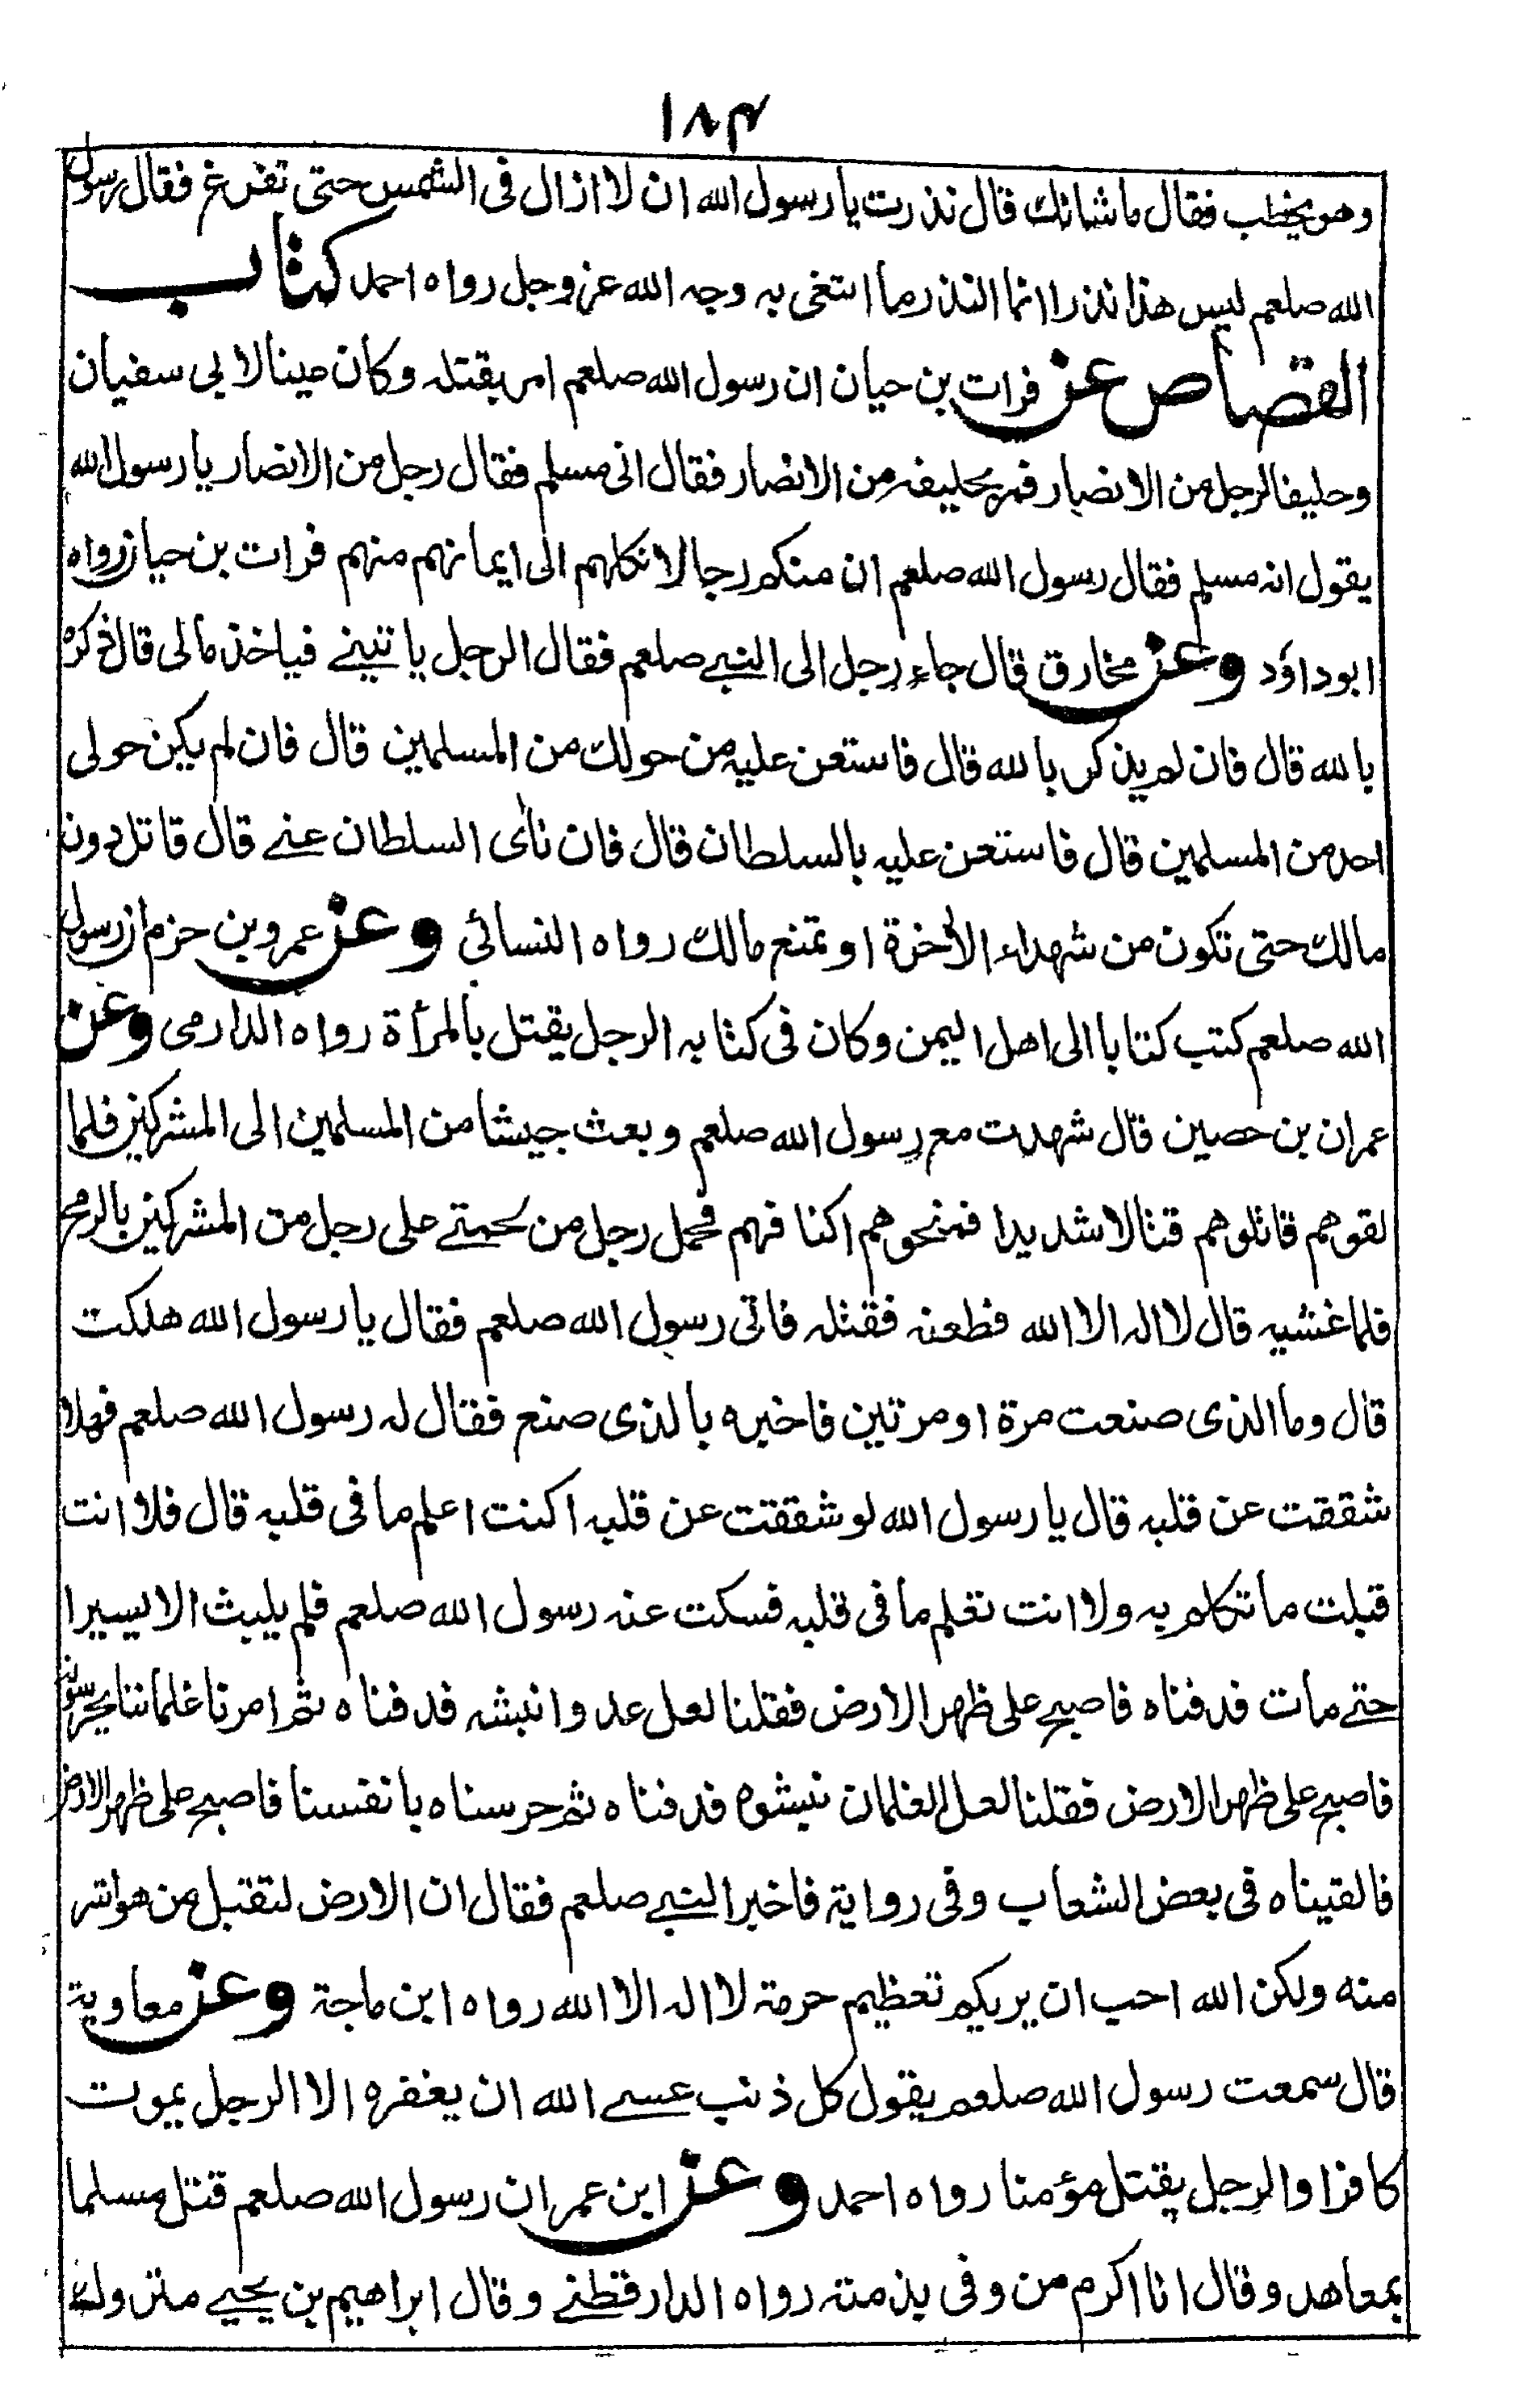 ۱۸۴
وهو يخطب فقال ما شانك قال نذرت يا رسول الله ان لا ازال فى الشمس حتى تفرغ فقال رسول
الله صلعم ليس هذا نذرا انما النذر ما ابتغى به وجه الله عز وجل رواه احمد كتاب
القصاص عن فرات بن حيان ان رسول الله صلعم امر بقتله وكان عينا لابى سفيان
وحليفا لرجل من الانصار فمر بحليفه من الانصار فقال انى مسلم فقال رجل من الانصار يا رسول الله
يقول انه مسلم فقال رسول الله صلعم ان منكم رجالا نكلهم الى ايمانهم منهم فرات بن حيان رواه
ابوداؤد وعن مخارق قال جاء رجل الى النبے صلعم فقال الرجل ياتينے فياخذ مالى قال ذكره
بالله قال فان لم يذكر بالله قال فاستعن عليه من حولك من المسلمين قال فان لم يكن حولى
احد من المسلمين قال فاستعن عليه بالسلطان قال فان نأى السلطان عنے قال قاتل دون
مالك حتى تكون من شهداء الأخرة او تمنع مالك رواه النسائي وعن عمرو بن حزم ان رسول
الله صلعم كتب كتابا الى اهل اليمن وكان فى كتابه الرجل يقتل بالمرأة رواه الدارمى وعن
عمران بن حصين قال شهدت مع رسول الله صلعم وبعث جيشا من المسلمين الى المشركين فلما
لقوهم قاتلوهم قتالا شديدا فمنحوهم اكتافهم فحمل رجل من لحمتے على رجل من المشركين بالرمح
فلما غشيه قال لا اله الا الله فطعنه فقتله فاتى رسول الله صلعم فقال يا رسول الله هلكت
قال وما الذى صنعت مرة او مرتين فاخبره بالذى صنع فقال له رسول الله صلعم فهلا
شققت عن قلبه قال يا رسول الله لو شققت عن قلبه اكنت اعلم ما فى قلبه قال فلا انت
قبلت ما تكلم به ولا انت تعلم ما فى قلبه فسكت عنه رسول الله صلعم فلم يلبث الا يسيرا
حتے مات فدفناه فاصبح على ظهر الارض فقلنا لعل عدوا نبشه فدفناه ثم امرنا غلماننا يحرسونه
فاصبح على ظهر الارض فقلنا لعل الغلمان نبشوه فدفناه ثم حرسناه بانفسنا فاصبح على ظهر الارض
فالقيناه فى بعض الشعاب وفى رواية فاخبر النبے صلعم فقال ان الارض لتقبل من هو اشر
منه ولكن الله احب ان يريكم تعظيم حرمة لا اله الا الله رواه ابن ماجة وعن معاوية
قال سمعت رسول الله صلعم يقول كل ذنب عسے الله ان يغفره الا الرجل يموت
كافرا والرجل يقتل مؤمنا رواه احمد وعن ابن عمر ان رسول الله صلعم قتل مسلما
بمعاهد وقال انا اكرم من وفى بذمته رواه الدارقطنے وقال ابراهيم بن يحيے متروك